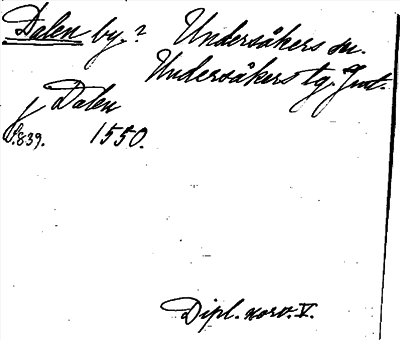 Dalen by.? Undersåkers sn.
Undersåkers tg. Jmt.
j Dalen
S.839. 1550.
Dipl. norv. V.